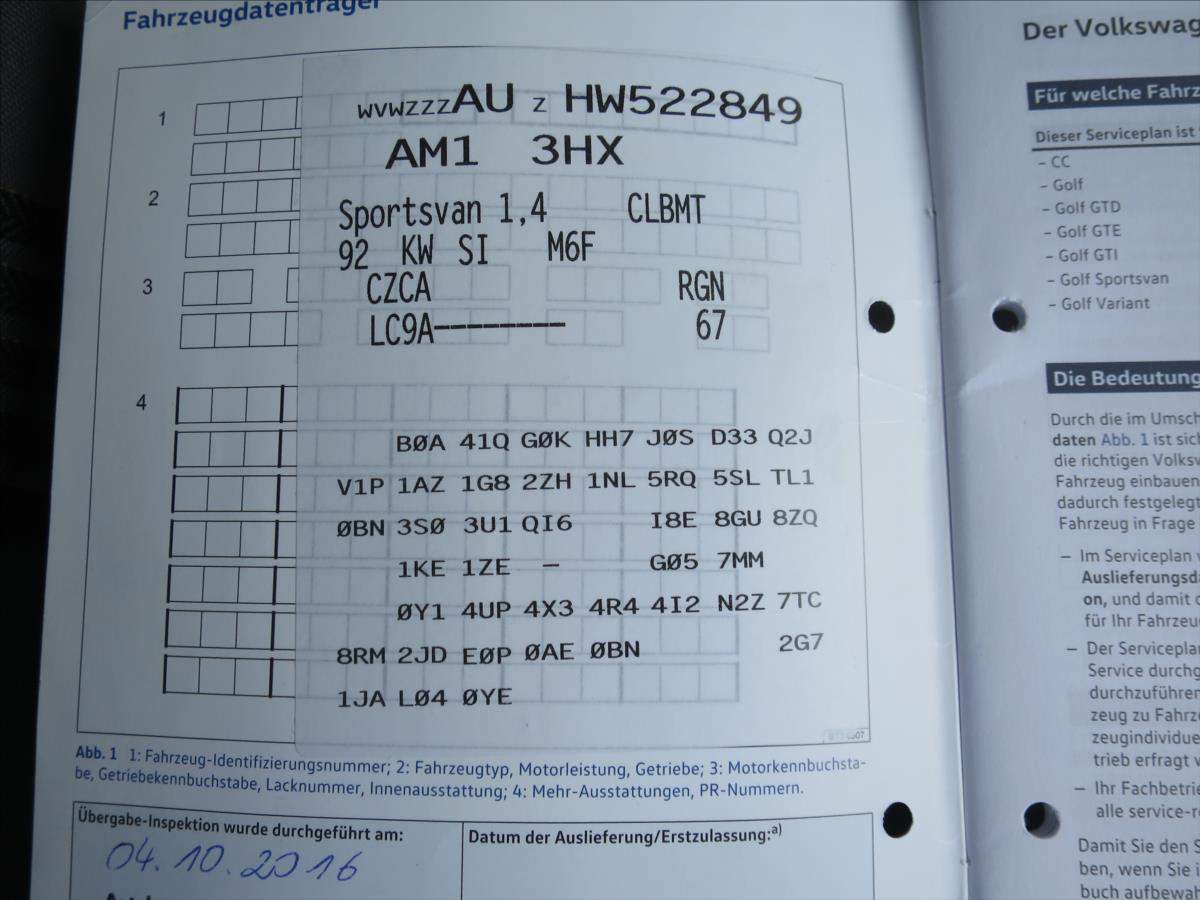 Fahrzeugdatenträger
1
WVWZZZAU Z HW522849
AM1 3HX
2
Sportsvan 1,4 CLBMT
92 KW SI M6F
3
CZCA RGN
LC9A-------- 67
4
BØA 41Q GØK HH7 JØS D33 Q2J
V1P 1AZ 1G8 2ZH 1NL 5RQ 5SL TL1
ØBN 3SØ 3U1 QI6 I8E 8GU 8ZQ
1KE 1ZE – GØ5 7MM
ØY1 4UP 4X3 4R4 4I2 N2Z 7TC
8RM 2JD EØP ØAE ØBN 2G7
1JA LØ4 ØYE
Abb. 1 1: Fahrzeug-Identifizierungsnummer; 2: Fahrzeugtyp, Motorleistung, Getriebe; 3: Motorkennbuchsta-
be, Getriebekennbuchstabe, Lacknummer, Innenausstattung; 4: Mehr-Ausstattungen, PR-Nummern.
Übergabe-Inspektion wurde durchgeführt am:
04.10.2016
Datum der Auslieferung/Erstzulassung:a)
Der Volkswag
Für welche Fahrz
Dieser Serviceplan ist
– CC
– Golf
– Golf GTD
– Golf GTE
– Golf GTI
– Golf Sportsvan
– Golf Variant
Die Bedeutung
Durch die im Umsch
daten Abb. 1 ist sich
die richtigen Volksw
Fahrzeug einbauen
dadurch festgelegt
Fahrzeug in Frage
– Im Serviceplan
Auslieferungsda
on, und damit
für Ihr Fahrzeu
– Der Servicepla
Service durchg
durchzuführen
zeug zu Fahrze
zeugindividue
trieb erfragt
– Ihr Fachbetrie
alle service-re
Damit Sie den S
ben, wenn Sie i
buch aufbewah